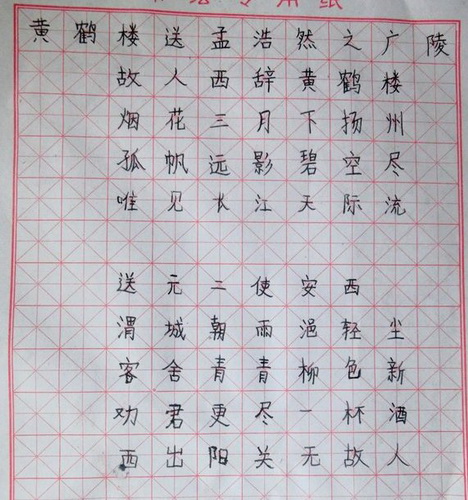 专用纸
黄鹤楼送孟浩然之广陵
故人西辞黄鹤楼
烟花三月下扬州
孤帆远影碧空尽
唯见长江天际流
送元二使安西
渭城朝雨浥轻尘
客舍青青柳色新
劝君更尽一杯酒
西出阳关无故人